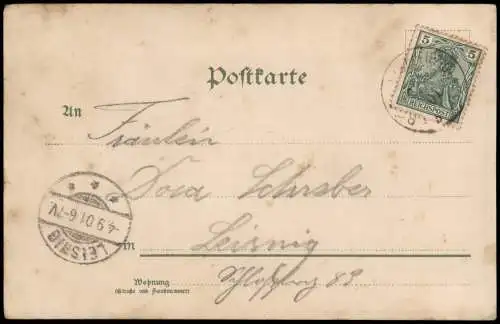 Postkarte
5 5
REICHSPOST
An Fräulein
Dora Schreber
in Leisnig
Wohnung
(Straße und Hausnummer)
Schloßberg 89
* * *
-4.9.01.6-7V.
LEISNIG